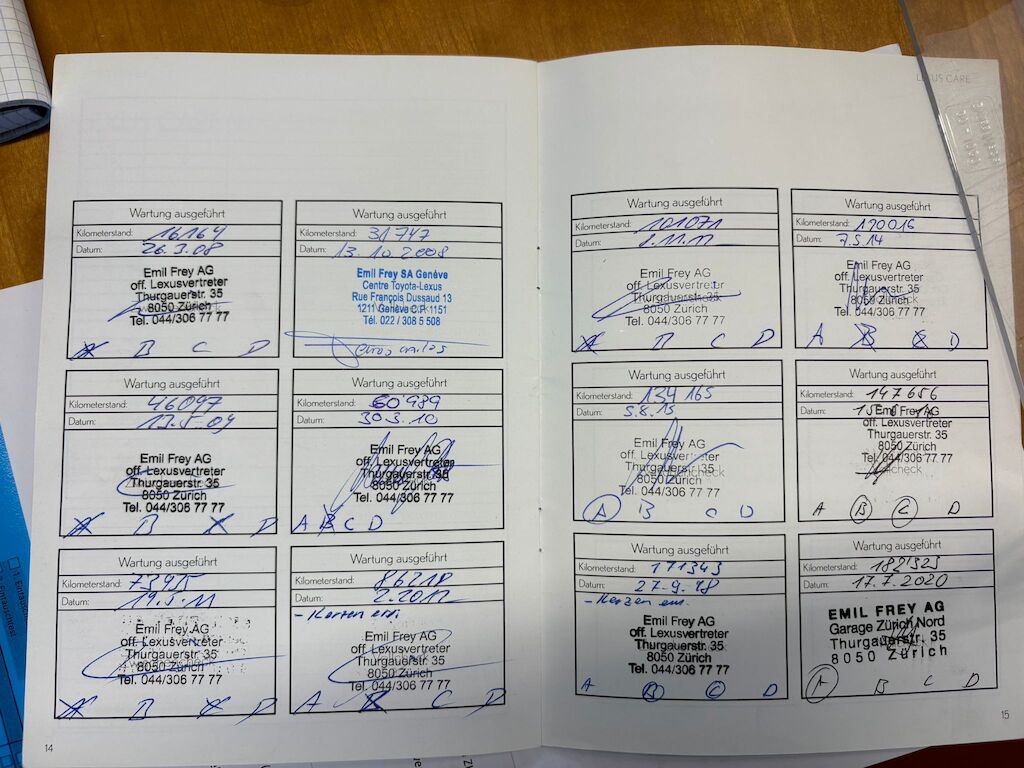 LEXUS CARE
Wartung ausgeführt
Kilometerstand: 16164
Datum: 26.3.08
Emil Frey AG
off. Lexusvertreter
Thurgauerstr. 35
8050 Zürich
Tel. 044/306 77 77
A B C D
Wartung ausgeführt
Kilometerstand: 31747
Datum: 13.10.2008
Emil Frey SA Genève
Centre Toyota-Lexus
Rue François Dussaud 13
1211 Genève C.P. 1151
Tél. 022 / 308 5 508
Wartung ausgeführt
Kilometerstand: 46097
Datum:
Emil Frey AG
off. Lexusvertreter
Thurgauerstr. 35
8050 Zürich
Tel. 044/306 77 77
A B C D
Wartung ausgeführt
Kilometerstand: 60989
Datum: 30.3.10
Emil Frey AG
off. Lexusvertreter
Thurgauerstr. 35
8050 Zürich
Tel. 044/306 77 77
A B C D
Wartung ausgeführt
Kilometerstand:
Datum: 19.5.11
Emil Frey AG
off. Lexusvertreter
Thurgauerstr. 35
8050 Zürich
Tel. 044/306 77 77
A B C D
Wartung ausgeführt
Kilometerstand: 86218
Datum: 2.2012
Emil Frey AG
off. Lexusvertreter
Thurgauerstr. 35
8050 Zürich
Tel. 044/306 77 77
A B C D
14
Wartung ausgeführt
Kilometerstand: 101071
Datum:
Emil Frey AG
off. Lexusvertreter
Thurgauerstr. 35
8050 Zürich
Tel. 044/306 77 77
A B C D
Wartung ausgeführt
Kilometerstand: 120016
Datum: 7.5.14
Emil Frey AG
off. Lexusvertreter
Thurgauerstr. 35
8050 Zürich
Tel. 044/306 77 77
A B C D
Wartung ausgeführt
Kilometerstand: 134165
Datum: 5.8.15
Emil Frey AG
off. Lexusvertreter
Thurgauerstr. 35
8050 Zürich
Tel. 044/306 77 77
A B C D
Wartung ausgeführt
Kilometerstand: 147656
Datum:
Emil Frey AG
off. Lexusvertreter
Thurgauerstr. 35
8050 Zürich
Tel. 044/306 77 77
A B C D
Wartung ausgeführt
Kilometerstand: 171343
Datum: 27.9.18
- Kerzen ern.
Emil Frey AG
off. Lexusvertreter
Thurgauerstr. 35
8050 Zürich
Tel. 044/306 77 77
A B C D
Wartung ausgeführt
Kilometerstand: 182323
Datum: 17.7.2020
EMIL FREY AG
Garage Zürich Nord
Thurgauerstr. 35
8050 Zürich
A B C D
15